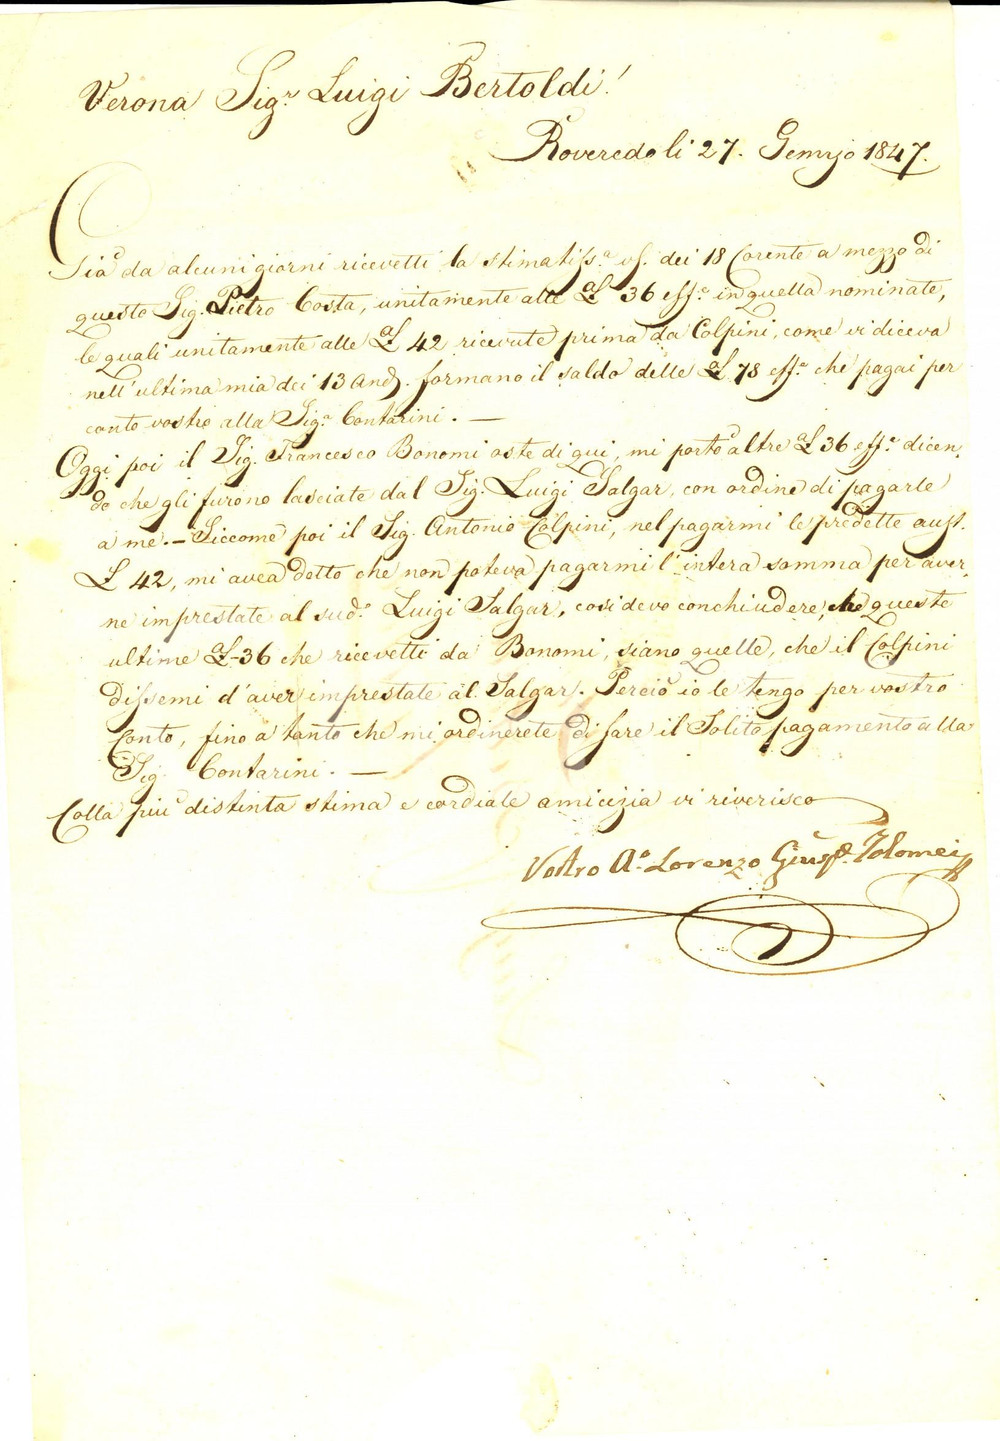 Verona Sig.r Luigi Bertoldi!
Roveredo li 27. Genajo 1847.
Già da alcuni giorni ricevetti la stimatiss.a vs. dei 18 Corente a mezzo di
questo Sig. Pietro Costa, unitamente alle aL 36 eff.e in quella nominate,
le quali unitamente alle aL 42 ricevute prima da Colpini, come vi diceva
nell'ultima mia dei 13 and. formano il saldo delle aL 78 eff.e che pagai per
conto vostro alla Sig.a Contarini. —
Oggi poi il Sig. Francesco Bonomi oste di qui, mi portò altre aL 36 eff.e dicen,
do che gli furono lasciate dal Sig. Luigi Salgar, con ordine di pagarle
a me. — Siccome poi il Sig. Antonio Colpini, nel pagarmi le predette aust.
L 42, mi avea detto che non poteva pagarmi l'intera somma per aver,
ne imprestate al sud.o Luigi Salgar, così devo conchiudere, che queste
ultime aL 36 che ricevetti da Bonomi, siano quelle, che il Colpini
dissemi d'aver imprestate al Salgar. Perciò io le tengo per vostro
Conto, fino a tanto che mi ordinerete di fare il Solito pagamento alla
Sig. Contarini. —
Colla più distinta stima e cordiale amicizia vi riverisco
Vostro A.o Lorenzo Giusp.e Tolomei